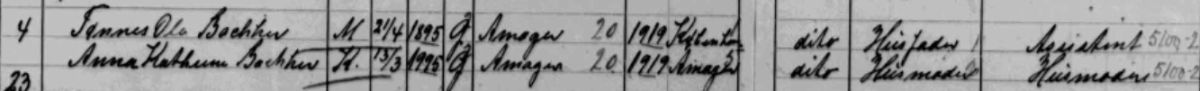 4 Tønnes Ole Bachker M 21/4 1895 G Amager 20 1919 København dito Husfader Assistent 5100-2
Anna Kathrine Bachker K. 13/3 1995 G Amager 20 1919 Amager dito Husmoder Husmoder 5100-2
23